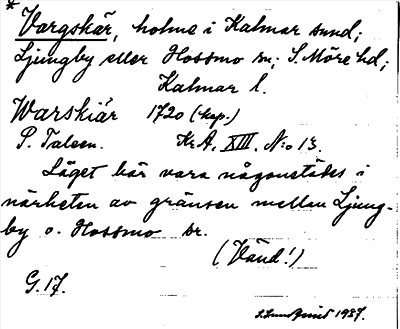 * Vargskär, holme i Kalmar sund;
Ljungby eller Hossmo sn; S. Möre hd;
Kalmar l.
Warskiär 1720 (kop.)
P. Talsen. Kr.A. XIII. N:o 13.
Läget bär vara någonstädes i
närheten av gränsen mellan Ljung-
by o. Hossmo sr.
(Vänd!)
G. 17.
1937.